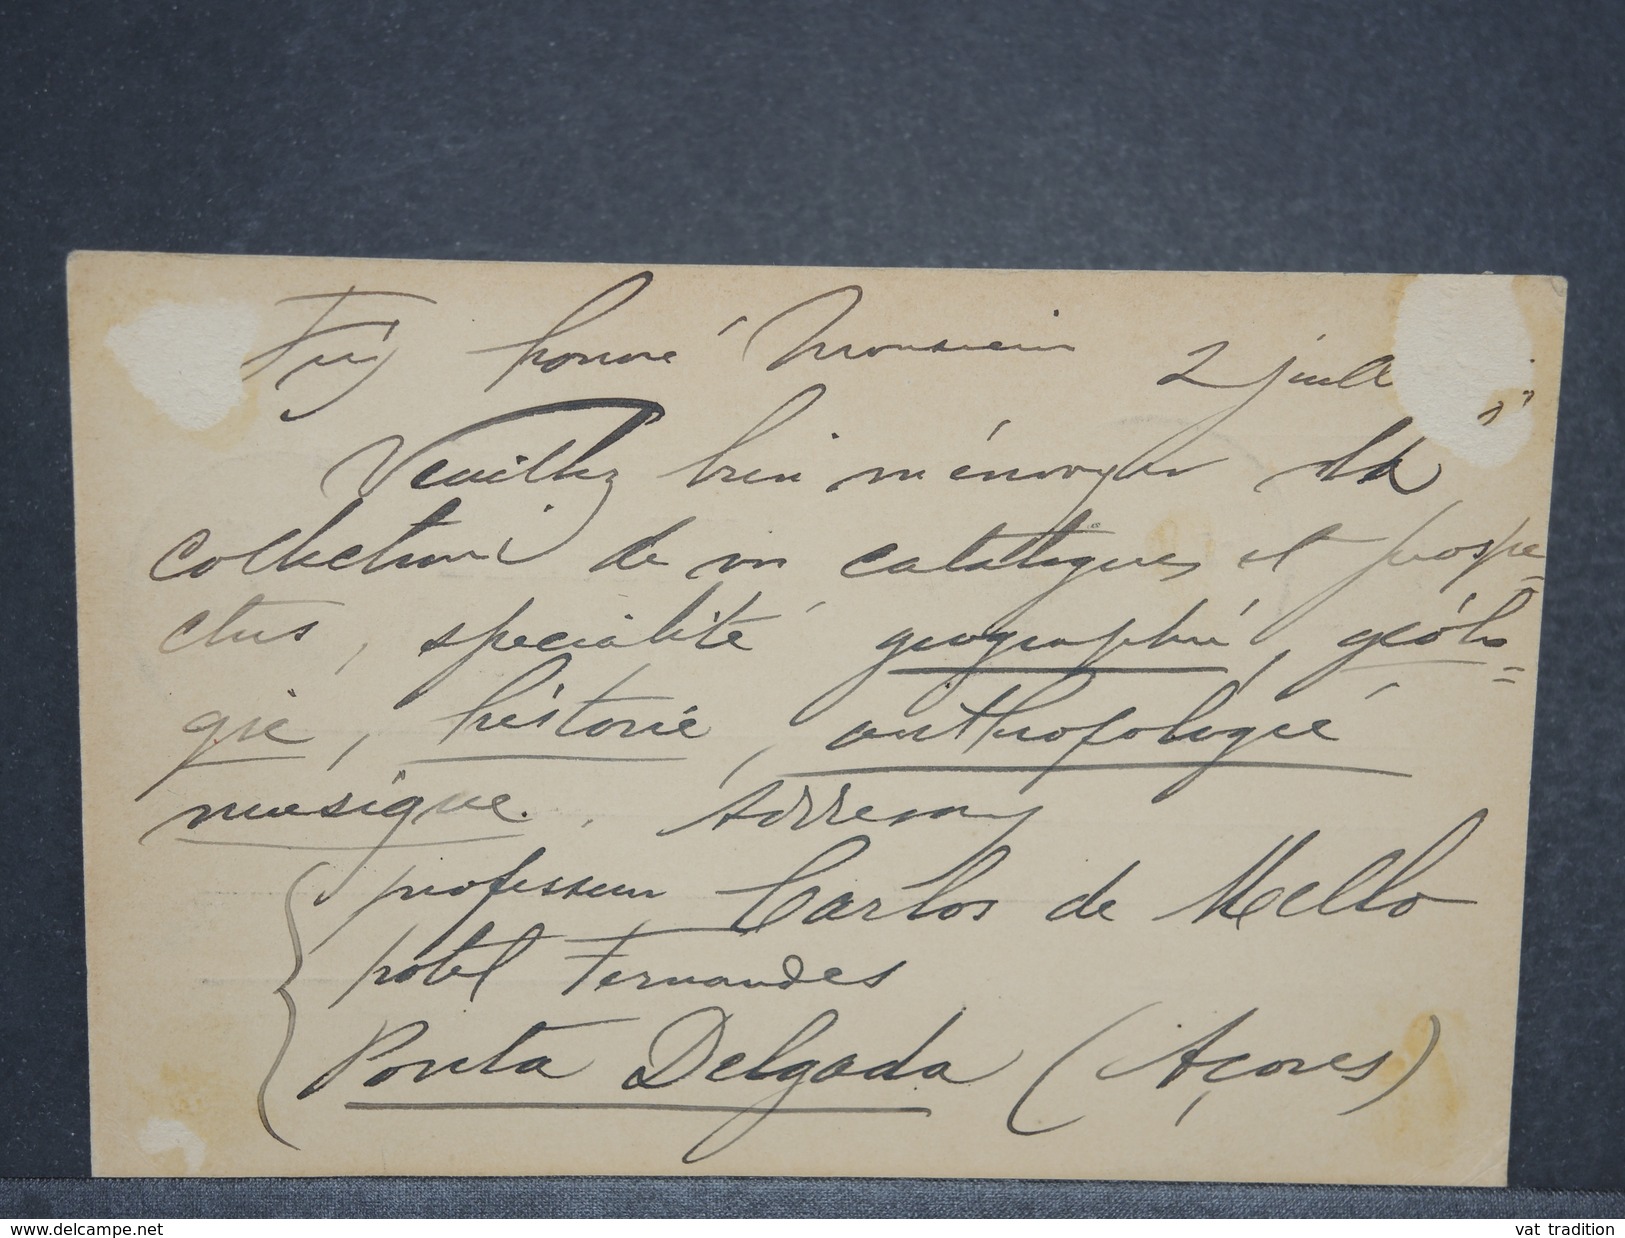 Très honoré Monsieur 2 juill
Veuillez bien m'énvoyer la
collection de vos catalogues et prospe=
ctus, specialité géographie, géolo=
gie, histoire, anthropologie
musique. Adresse
professeur Carlos de Mello
hotel Fernandes
Ponta Delgada (Açores)
www.delcampe.net
vat tradition